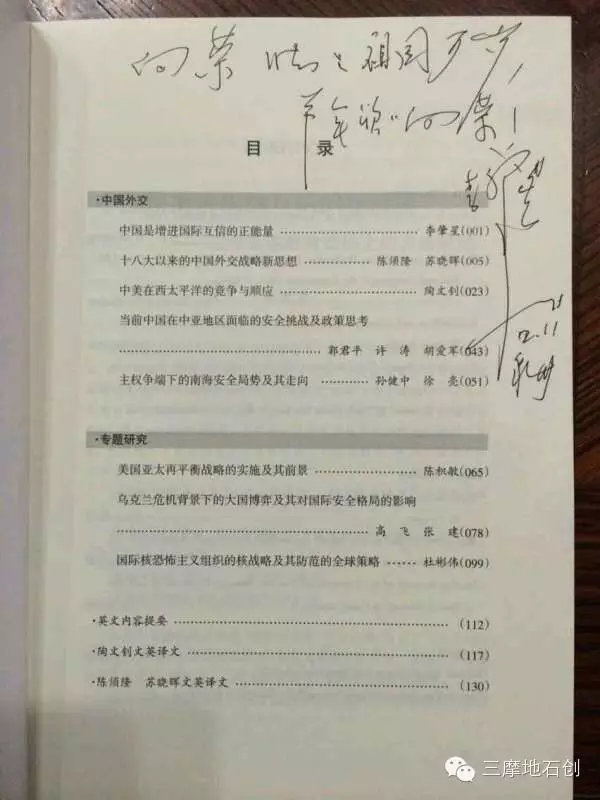 向荣 祖国万岁,
"向荣"!
目 录
·中国外交
中国是增进国际互信的正能量 李肇星(001)
十八大以来的中国外交战略新思想 陈须隆 苏晓晖(005)
中美在西太平洋的竞争与顺应 陶文钊(023)
当前中国在中亚地区面临的安全挑战及政策思考
郭君平 许涛 胡爱军(043)
主权争端下的南海安全局势及其走向 孙健中 徐亮(051)
·专题研究
美国亚太再平衡战略的实施及其前景 陈积敏(065)
乌克兰危机背景下的大国博弈及其对国际安全格局的影响
高飞 张建(078)
国际核恐怖主义组织的核战略及其防范的全球策略 杜彬伟(099)
·英文内容提要 (112)
·陶文钊文英译文 (117)
·陈须隆 苏晓晖文英译文 (130)
三摩地石创